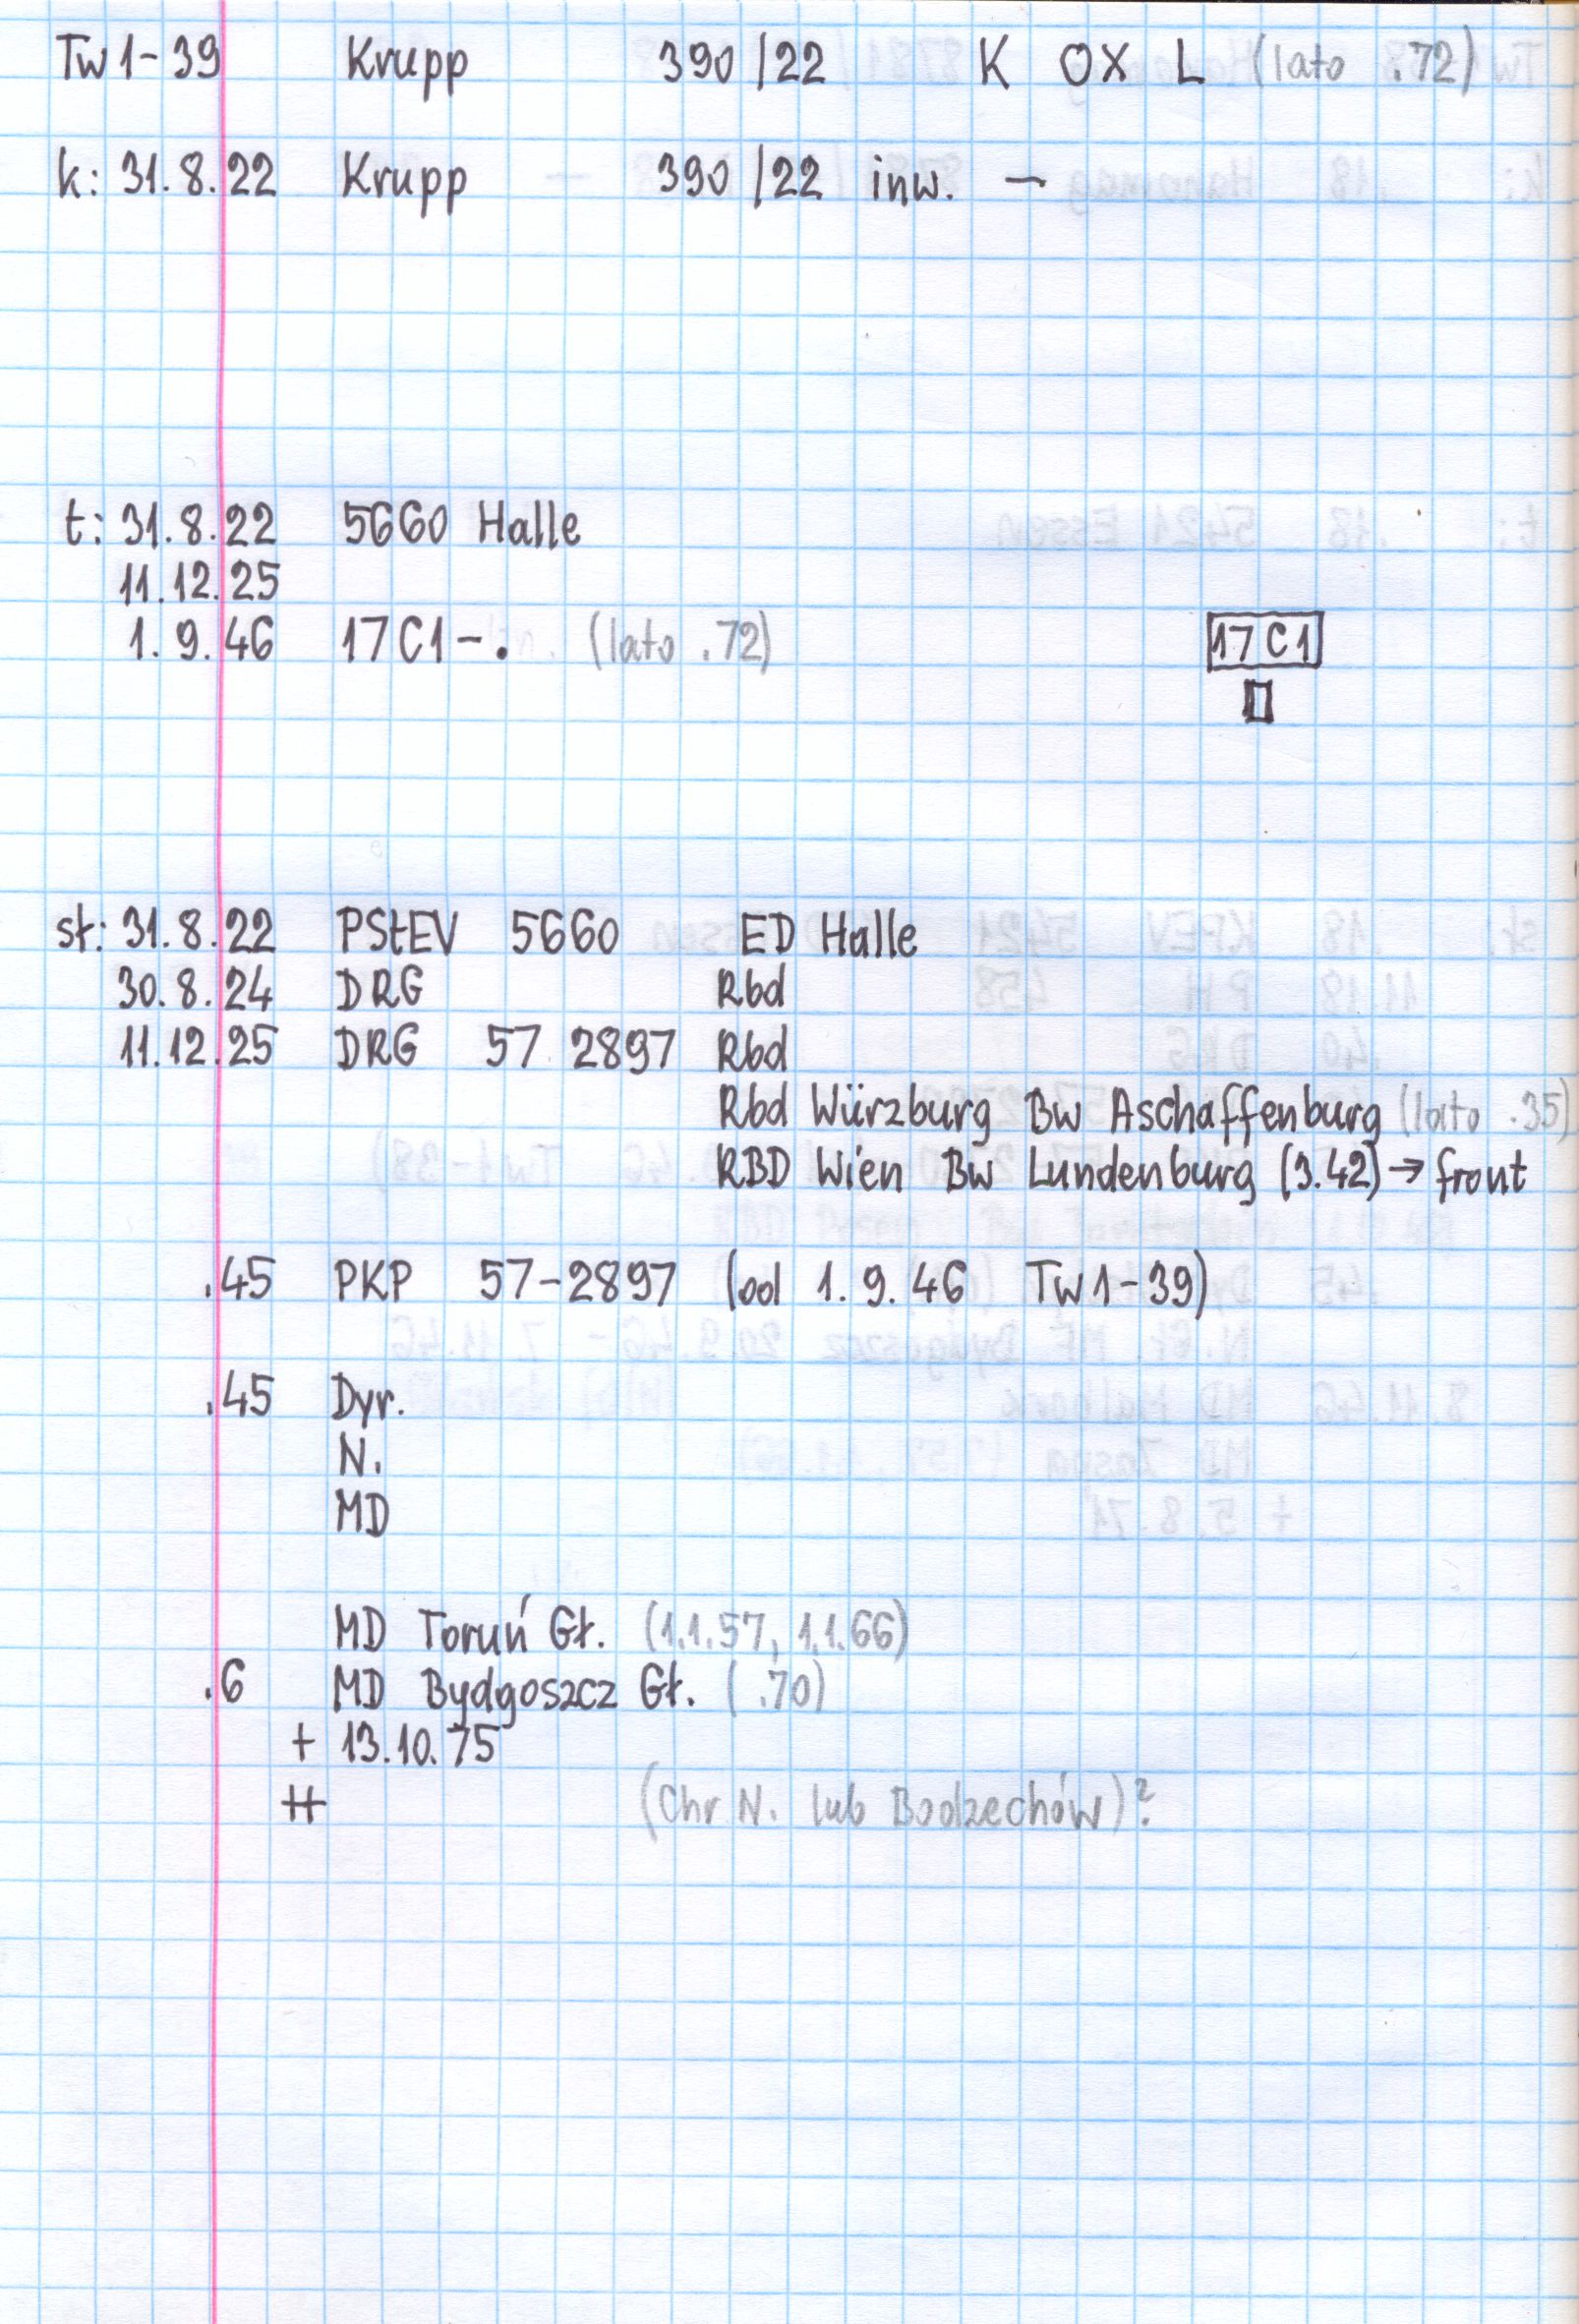 Tw1-39 Krupp 390/22 K OX L (lato .72)
k: 31.8.22 Krupp 390/22 inw. –
t: 31.8.22 5660 Halle
11.12.25
1.9.46 17C1-. (lato .72) 17C1
st: 31.8.22 PStEV 5660 ED Halle
30.8.24 DRG Rbd
11.12.25 DRG 57 2897 Rbd
Rbd Würzburg Bw Aschaffenburg (lato .35)
RBD Wien Bw Lundenburg (3.42) → front
.45 PKP 57-2897 (od 1.9.46 Tw1-39)
.45 Dyr.
N.
MD
MD Toruń Gł. (1.1.57, 1.1.66)
.6 MD Bydgoszcz Gł. ( .70)
+ 13.10.75
++ (Chr N. lub Bodzechów)?